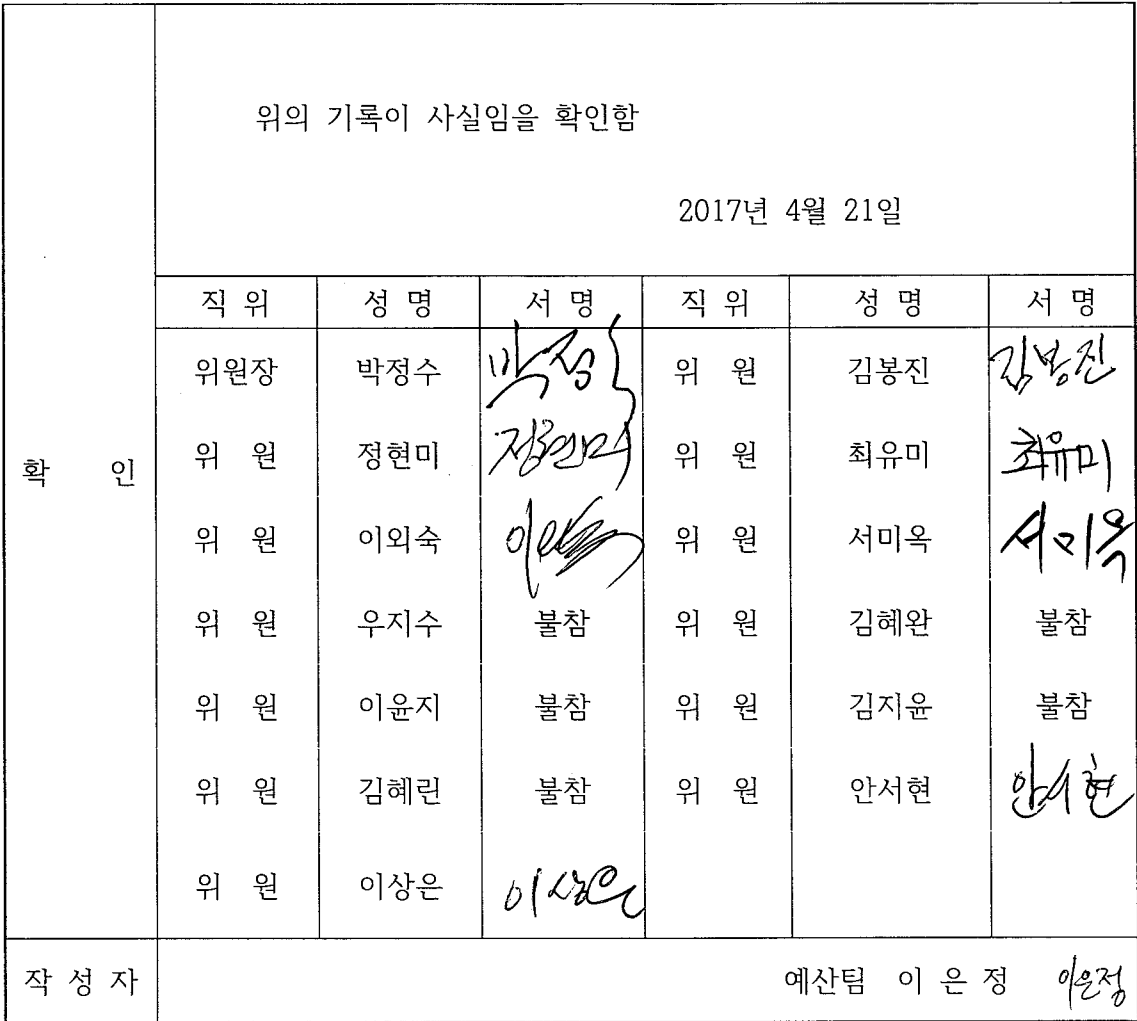 위의 기록이 사실임을 확인함
2017년 4월 21일
직 위 성 명 서 명 직 위 성 명 서 명
위원장 박정수 위 원 김봉진 김봉진
위 원 정현미 정현미 위 원 최유미 최유미
확 인
위 원 이외숙 위 원 서미옥 서미옥
위 원 우지수 불참 위 원 김혜완 불참
위 원 이윤지 불참 위 원 김지윤 불참
위 원 김혜린 불참 위 원 안서현 안서현
위 원 이상은 이상은
작 성 자 예산팀 이 은 정 이은정